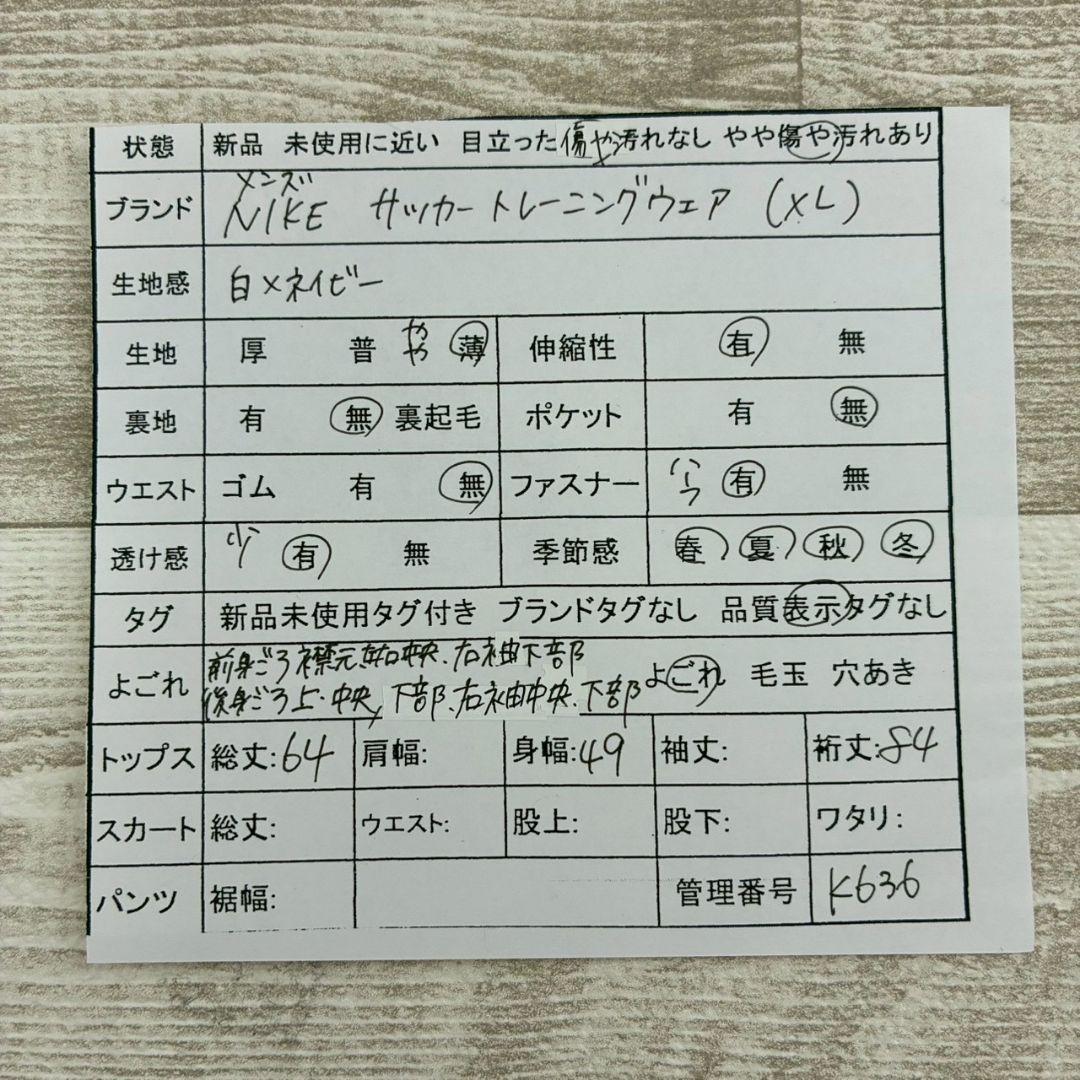 状態 新品 未使用に近い 目立った傷や汚れなし やや傷や汚れあり
メンズ
ブランド NIKE サッカートレーニングウェア (XL)
生地感 白×ネイビー
生地 厚 普 やや 薄 伸縮性 有 無
裏地 有 無 裏起毛 ポケット 有 無
ウエスト ゴム 有 無 ファスナー 有 無
透け感 少 有 無 季節感 春 夏 秋 冬
タグ 新品未使用タグ付き ブランドタグなし 品質表示タグなし
前身ごろ襟元 中央、右袖下部
よごれ 後身ごろ上・中央、下部、右袖中央、下部 よごれ 毛玉 穴あき
トップス 総丈:64 肩幅: 身幅:49 袖丈: 裄丈:84
スカート 総丈: ウエスト: 股上: 股下: ワタリ:
パンツ 裾幅: 管理番号 K636